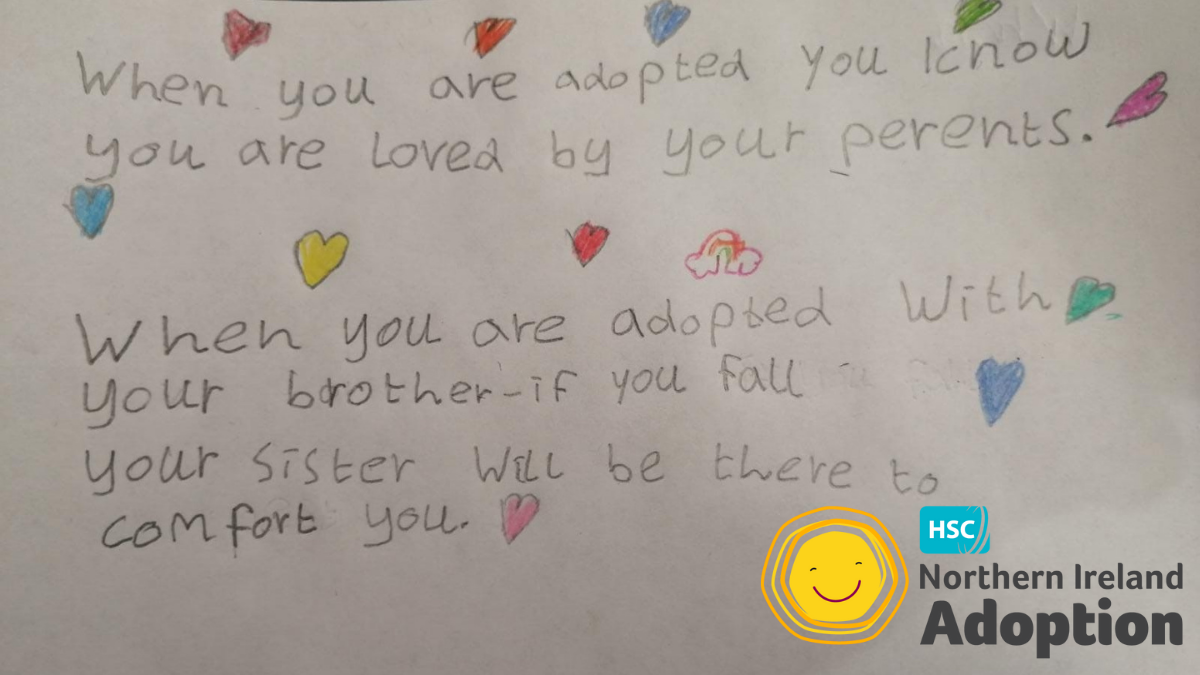 When you are adopted you know
you are loved by your perents.
When you are adopted with
your brother-if you fall
your sister will be there to
comfort you.
HSC
Northern Ireland
Adoption